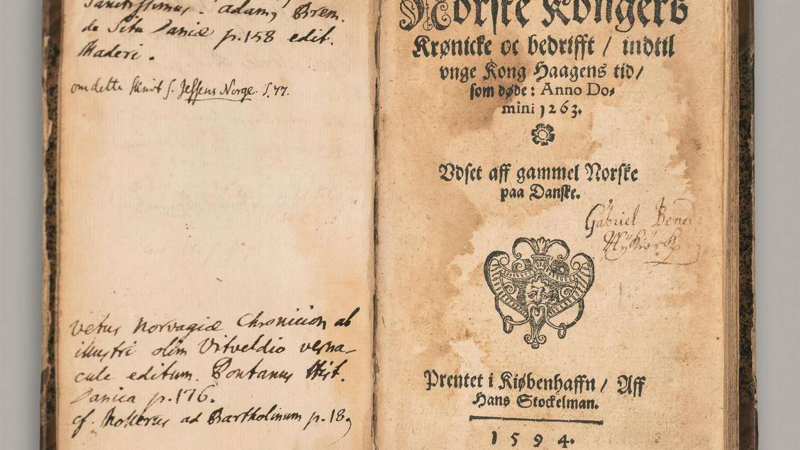 Sanctissimus. Adamus Brem.
de Situ Daniæ p. 158 edit.
Maderi.
om dette Skrift s. Jessens Norge. S. 77.
vetus Norvagiæ Chronicion ab
illustri olim Vitveldio verna-
cule editum. Pontanus Hist.
Danica p. 176.
cf. Mollerus ad Bartholinum p. 18,
Norske Kongers
Krønicke oc bedrifft / indtil
vnge Kong Haagens tid /
som døde: Anno Do-
mini 1263.
Vdset aff gammel Norske
paa Danske.
Gabriel
Prentet i Kiøbenhaffn / Aff
Hans Stockelman.
1594.